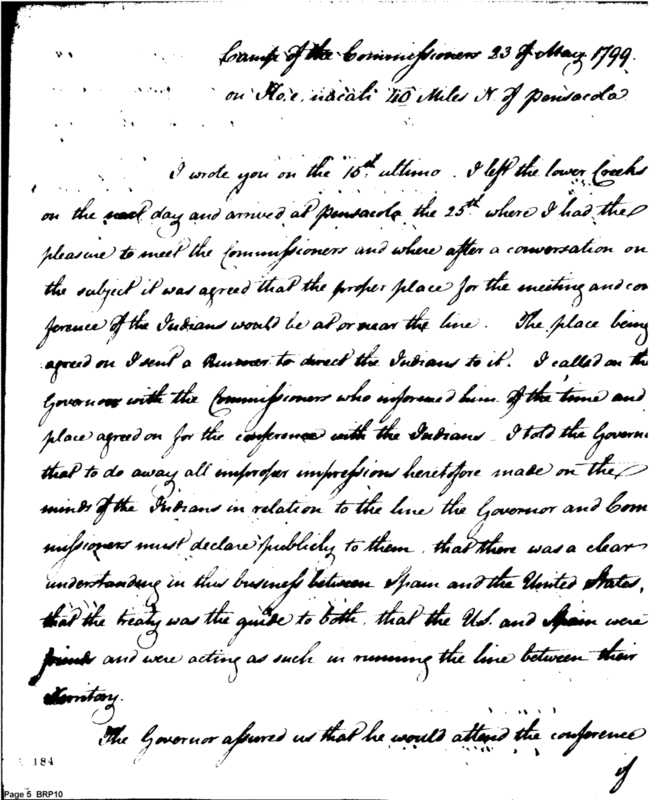 Camp of the Commissioners 23 of May 1799.
on Ko.e. nacali 40 Miles N. of Pensacola
I wrote you on the 15th ultimo. I left the lower Creeks
on the next day and arrived at Pensacola the 25th where I had the
pleasure to meet the Commissioners and where after a conversation on
the subject it was agreed that the proper place for the meeting and con
ference of the Indians would be at or near the line. The place being
agreed on I sent a Runner to direct the Indians to it. I called on the
Governor with the Commissioners who informed him of the time and
place agreed on for the conference with the Indians. I told the Govern
that to do away all improper impressions heretofore made on the
minds of the Indians in relation to the line the Governor and Com
missioners must declare publicly to them, that there was a clear
understanding in this business between Spain and the United States,
that the treaty was the guide to both, that the U.S. and Spain were
friends and were acting as such in running the line between their
territory.
The Governor assured us that he would attend the conference
if
184
Page 5 BRP10